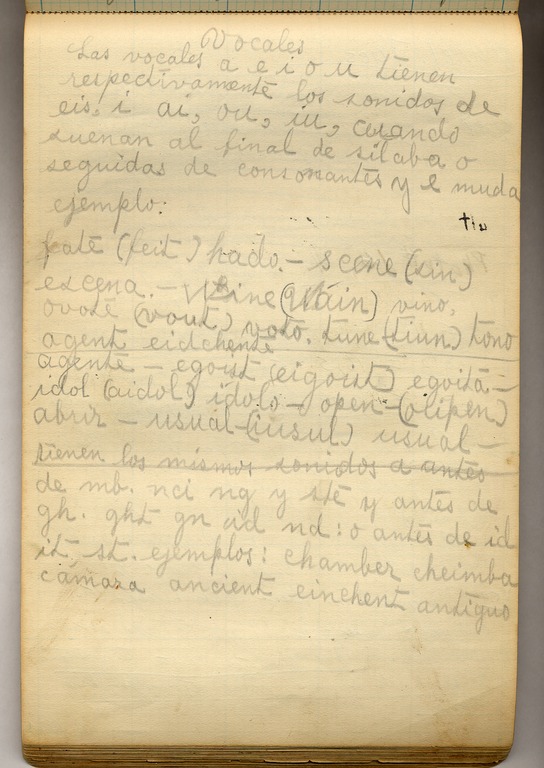 Vocales
Las vocales a e i o u tienen
respectivamente los sonidos de
eis, i ai, ou, iu, cuando
suenan al final de silaba o
seguidas de consonantes y e muda
ejemplo:
fate (feit) hado. - scene (sin)
escena. - Wine (Uain) vino,
(vout) voto. tune (tiun) tono
agent eidchente
agente - egoist (eigoist) egoita -
idol (aidol) idolo - open - (oupen)
abrir - usual - (iusul) usual -
tienen los mismos sonidos a antes
de mb. nci ng y ste y antes de
gh. ght gn ild nd: o antes de ld
lt, st. ejemplos: chamber cheimba
camara ancient einchent antiguo